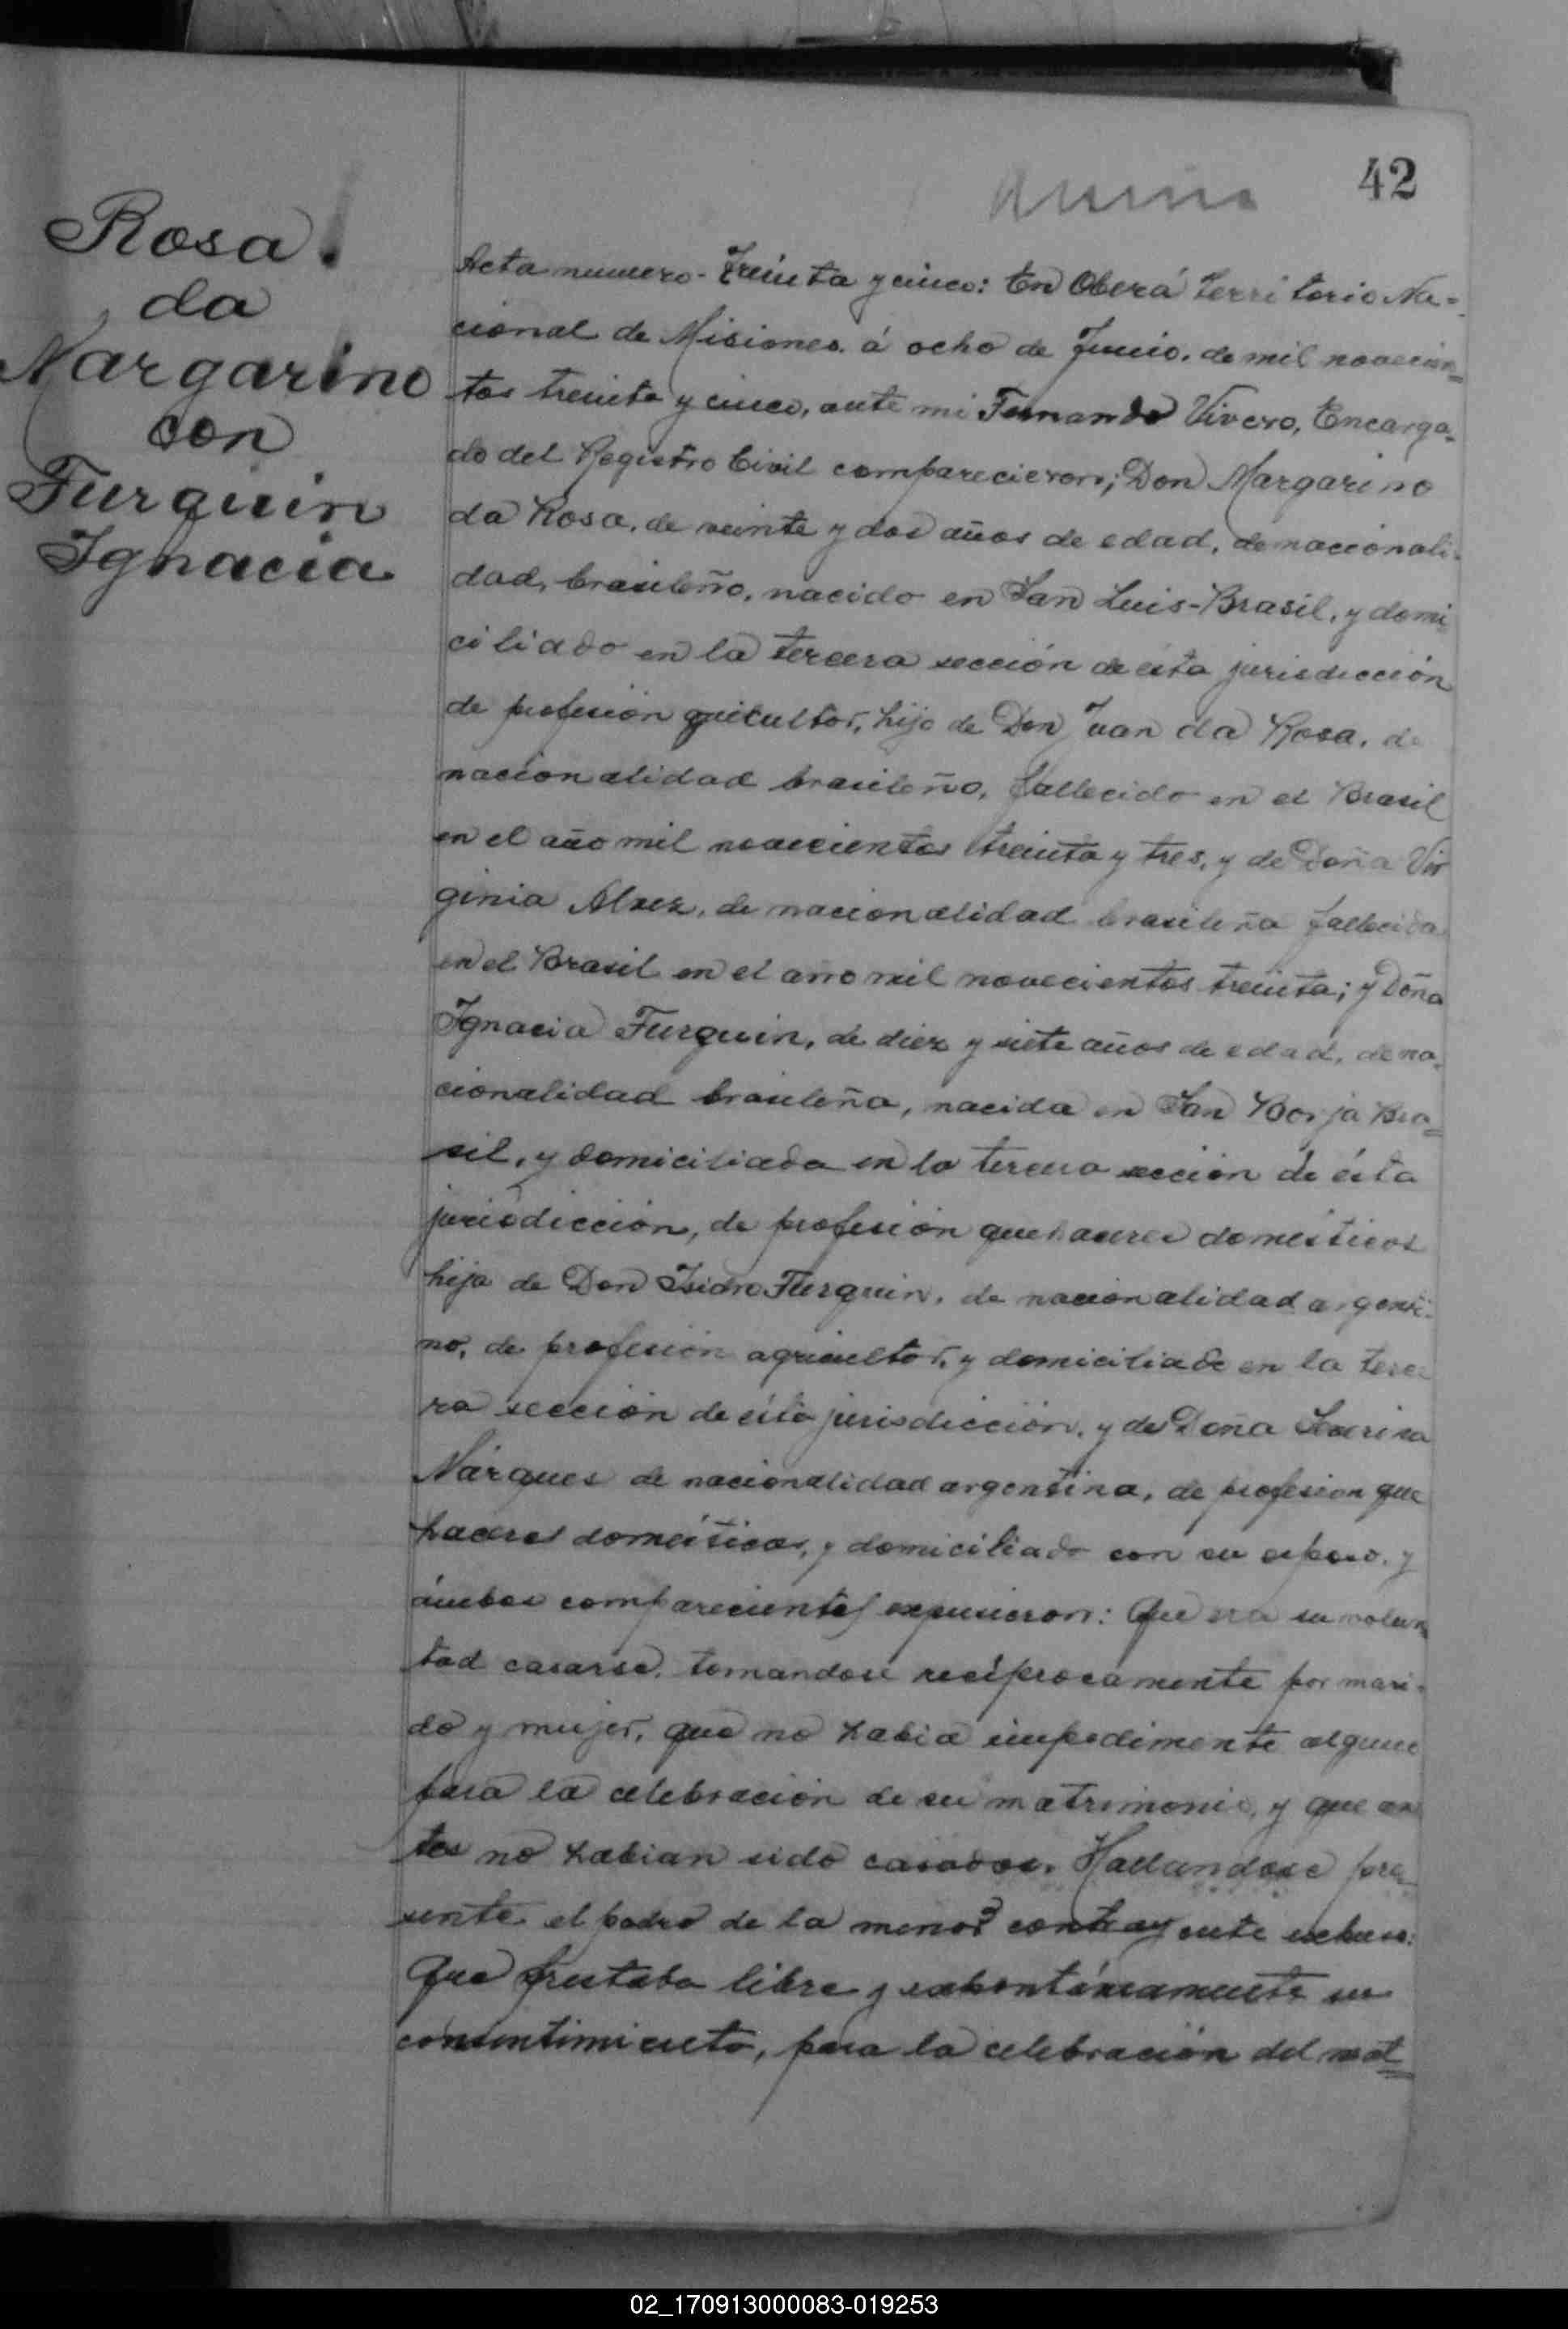 42
Rosa
da
Margarino
con
Furquin
Ignacia
Acta numero - Treinta y cinco: En Oberá Territorio Na=
cional de Misiones. á ocho de Junio. de mil novecien=
tos treinta y cinco, ante mi Fernando Vivero, Encarga=
do del Registro Civil comparecieron; Don Margarino
da Rosa, de veinte y dos años de edad, de nacionali-
dad, brasileño, nacido en San Luis-Brasil, y domi
ciliado en la tercera sección de ésta jurisdicción
de profesión hijo de Don Juan da Rosa, de
nacionalidad brasileño, fallecido en el Brasil
en el año mil novecientos treinta y tres, y de Doña Vir
ginia Alvez, de nacionalidad brasileña fallecida
en el Brasil en el año mil novecientos treinta; y Doña
Ignacia Furquin, de diez y siete años de edad, de na=
cionalidad brasileña, nacida en San Borja Bra=
sil, y domiciliada en la tercera sección de ésta
jurisdicción, de profesión quehaceres domésticos
hija de Don Isidro Furquin, de nacionalidad argenti-
no, de profesión agricultor, y domiciliado en la terce
ra sección de ésta jurisdicción, y de Doña
Márques de nacionalidad argentina, de profesion que
haceres domésticos, y domiciliado con su esposo, y
ámbos comparecientes expusieron: Que era su volun
tad casarse, tomandose recíprocamente por mari-
do y mujer, que no habia impedimento alguno
para la celebración de su matrimonio, y que an
tes no habian sido casados. Hallandose pre
sente el padre de la menor contrayente expuso:
Que prestaba libre y su
consentimiento, para la celebración del mat=
02_170913000083-019253